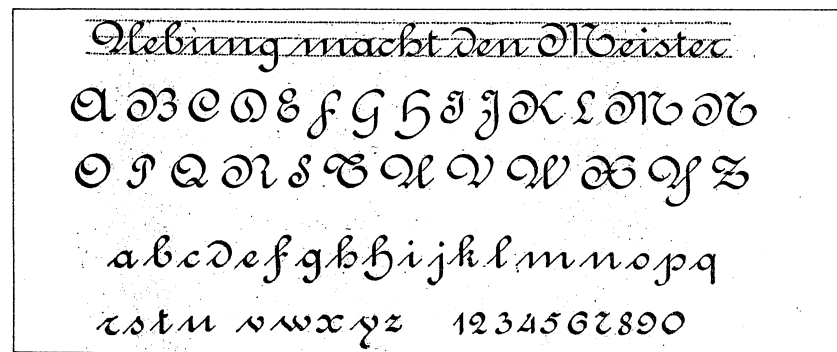 Uebung macht den Meister
A B C D E F G H I J K L M N
O P Q R S T U V W X Y Z
a b c d e f g h h i j k l m n o p q
r s t u v w x y z 1 2 3 4 5 6 7 8 9 0